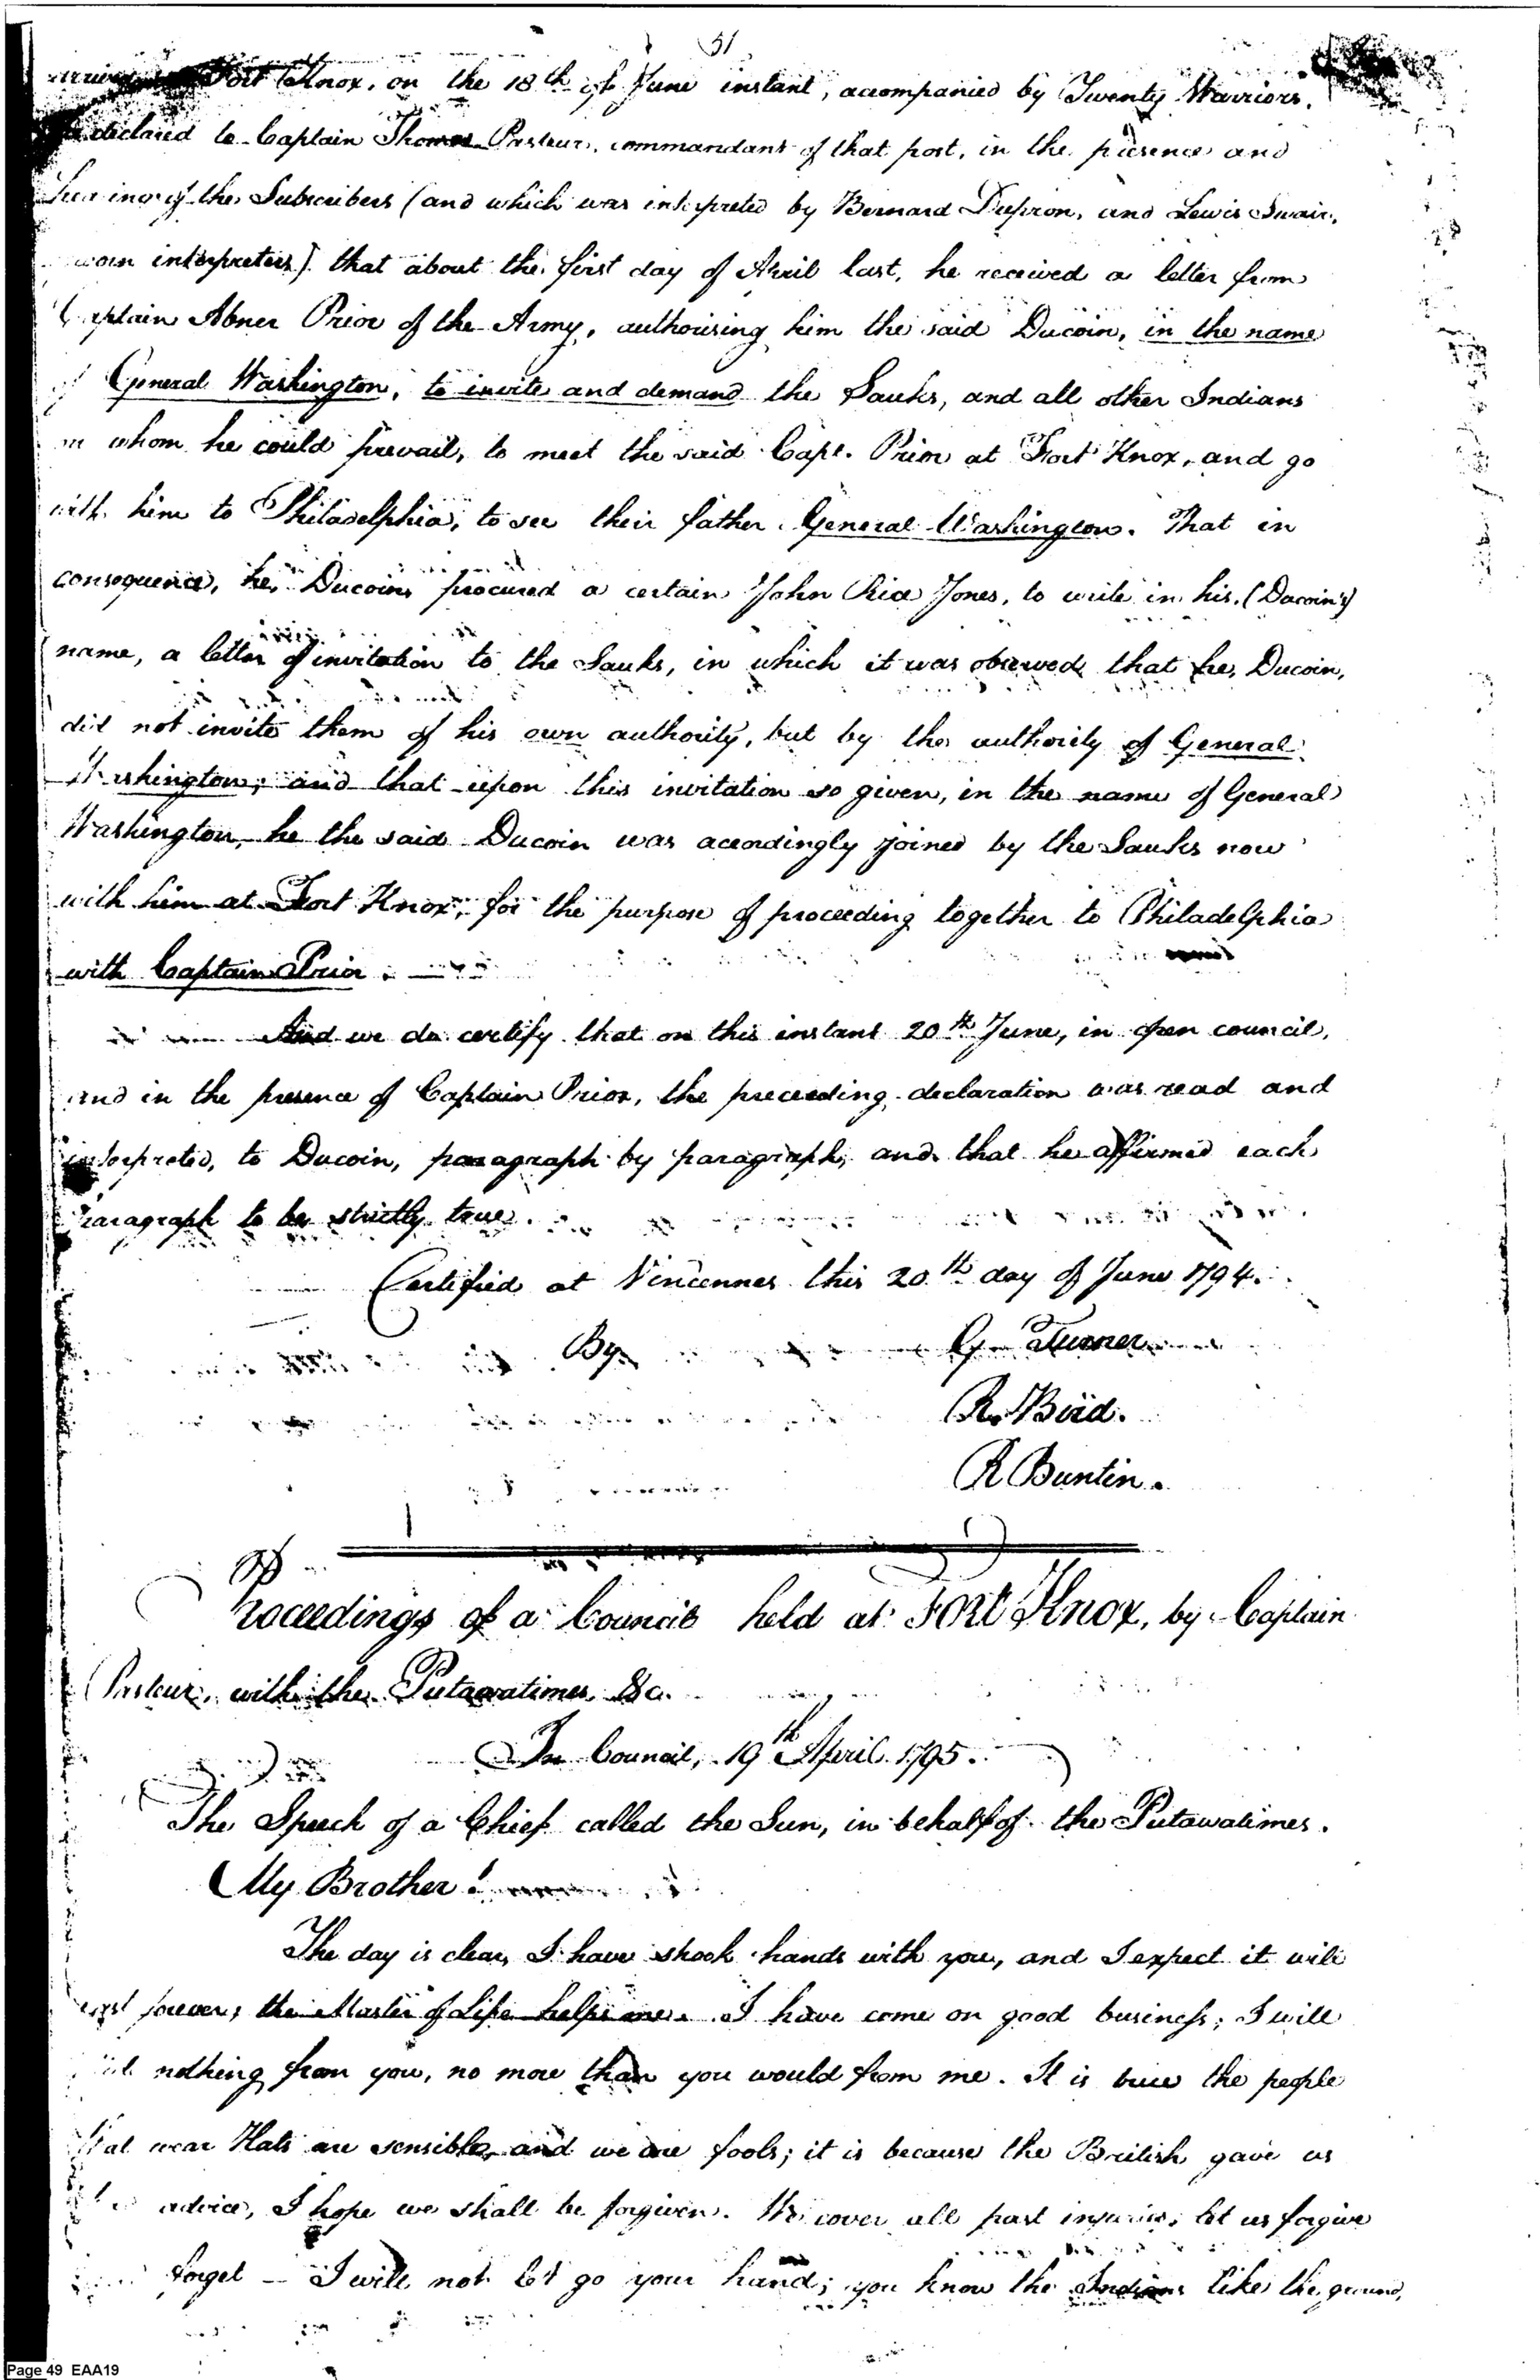 51
Fort Knox, on the 18th of June instant, accompanied by Twenty Warriors,
declared to Captain Thomas Pasteur, commandant of that post, in the presence and
hearing of the Subscribers (and which was interpreted by Bernard Dupron, and Lewis Swair,
interpreters) that about the first day of April last, he received a letter from
Captain Abner Prior of the Army, authorising him the said Ducoin, in the name
of General Washington, to invite and demand the Sauks, and all other Indians
on whom he could prevail, to meet the said Capt. Prior at Fort Knox, and go
with him to Philadelphia, to see their father General Washington. That in
consequence, he, Ducoin, procured a certain John Rice Jones, to write in his (Ducoin's)
name, a letter of invitation to the Sauks, in which it was observed that he, Ducoin,
did not invite them of his own authority, but by the authority of General
Washington; and that upon this invitation so given, in the name of General
Washington, he the said Ducoin was accordingly joined by the Sauks now
with him at Fort Knox, for the purpose of proceeding together to Philadelphia
with Captain Prior.
And we do certify that on this instant 20th June, in open council,
and in the presence of Captain Prior, the preceeding declaration was read and
interpreted, to Ducoin, paragraph by paragraph, and that he affirmed each
paragraph to be strictly true.
Certified at Vincennes this 20th day of June 1794.
By G Turner
R. Buid.
R Buntin.
Proceedings of a Council held at Fort Knox, by Captain
Pasteur, with the Putawatimes, &c.
In Council, 19th April 1795.
The Speech of a Chief called the Sun, in behalf of the Putawatimes.
My Brother!
The day is clear, I have shook hands with you, and I expect it will
last forever, the Master of Life helps me. I have come on good business; I will
nothing from you, no more than you would from me. It is true the people
that wear Hats are sensible, and we are fools; it is because the British gave us
advice, I hope we shall be forgiven. We cover all past injuries, let us forgive
forget — I will not let go your hand; you know the Indians like the ground,
Page 49 EAA19